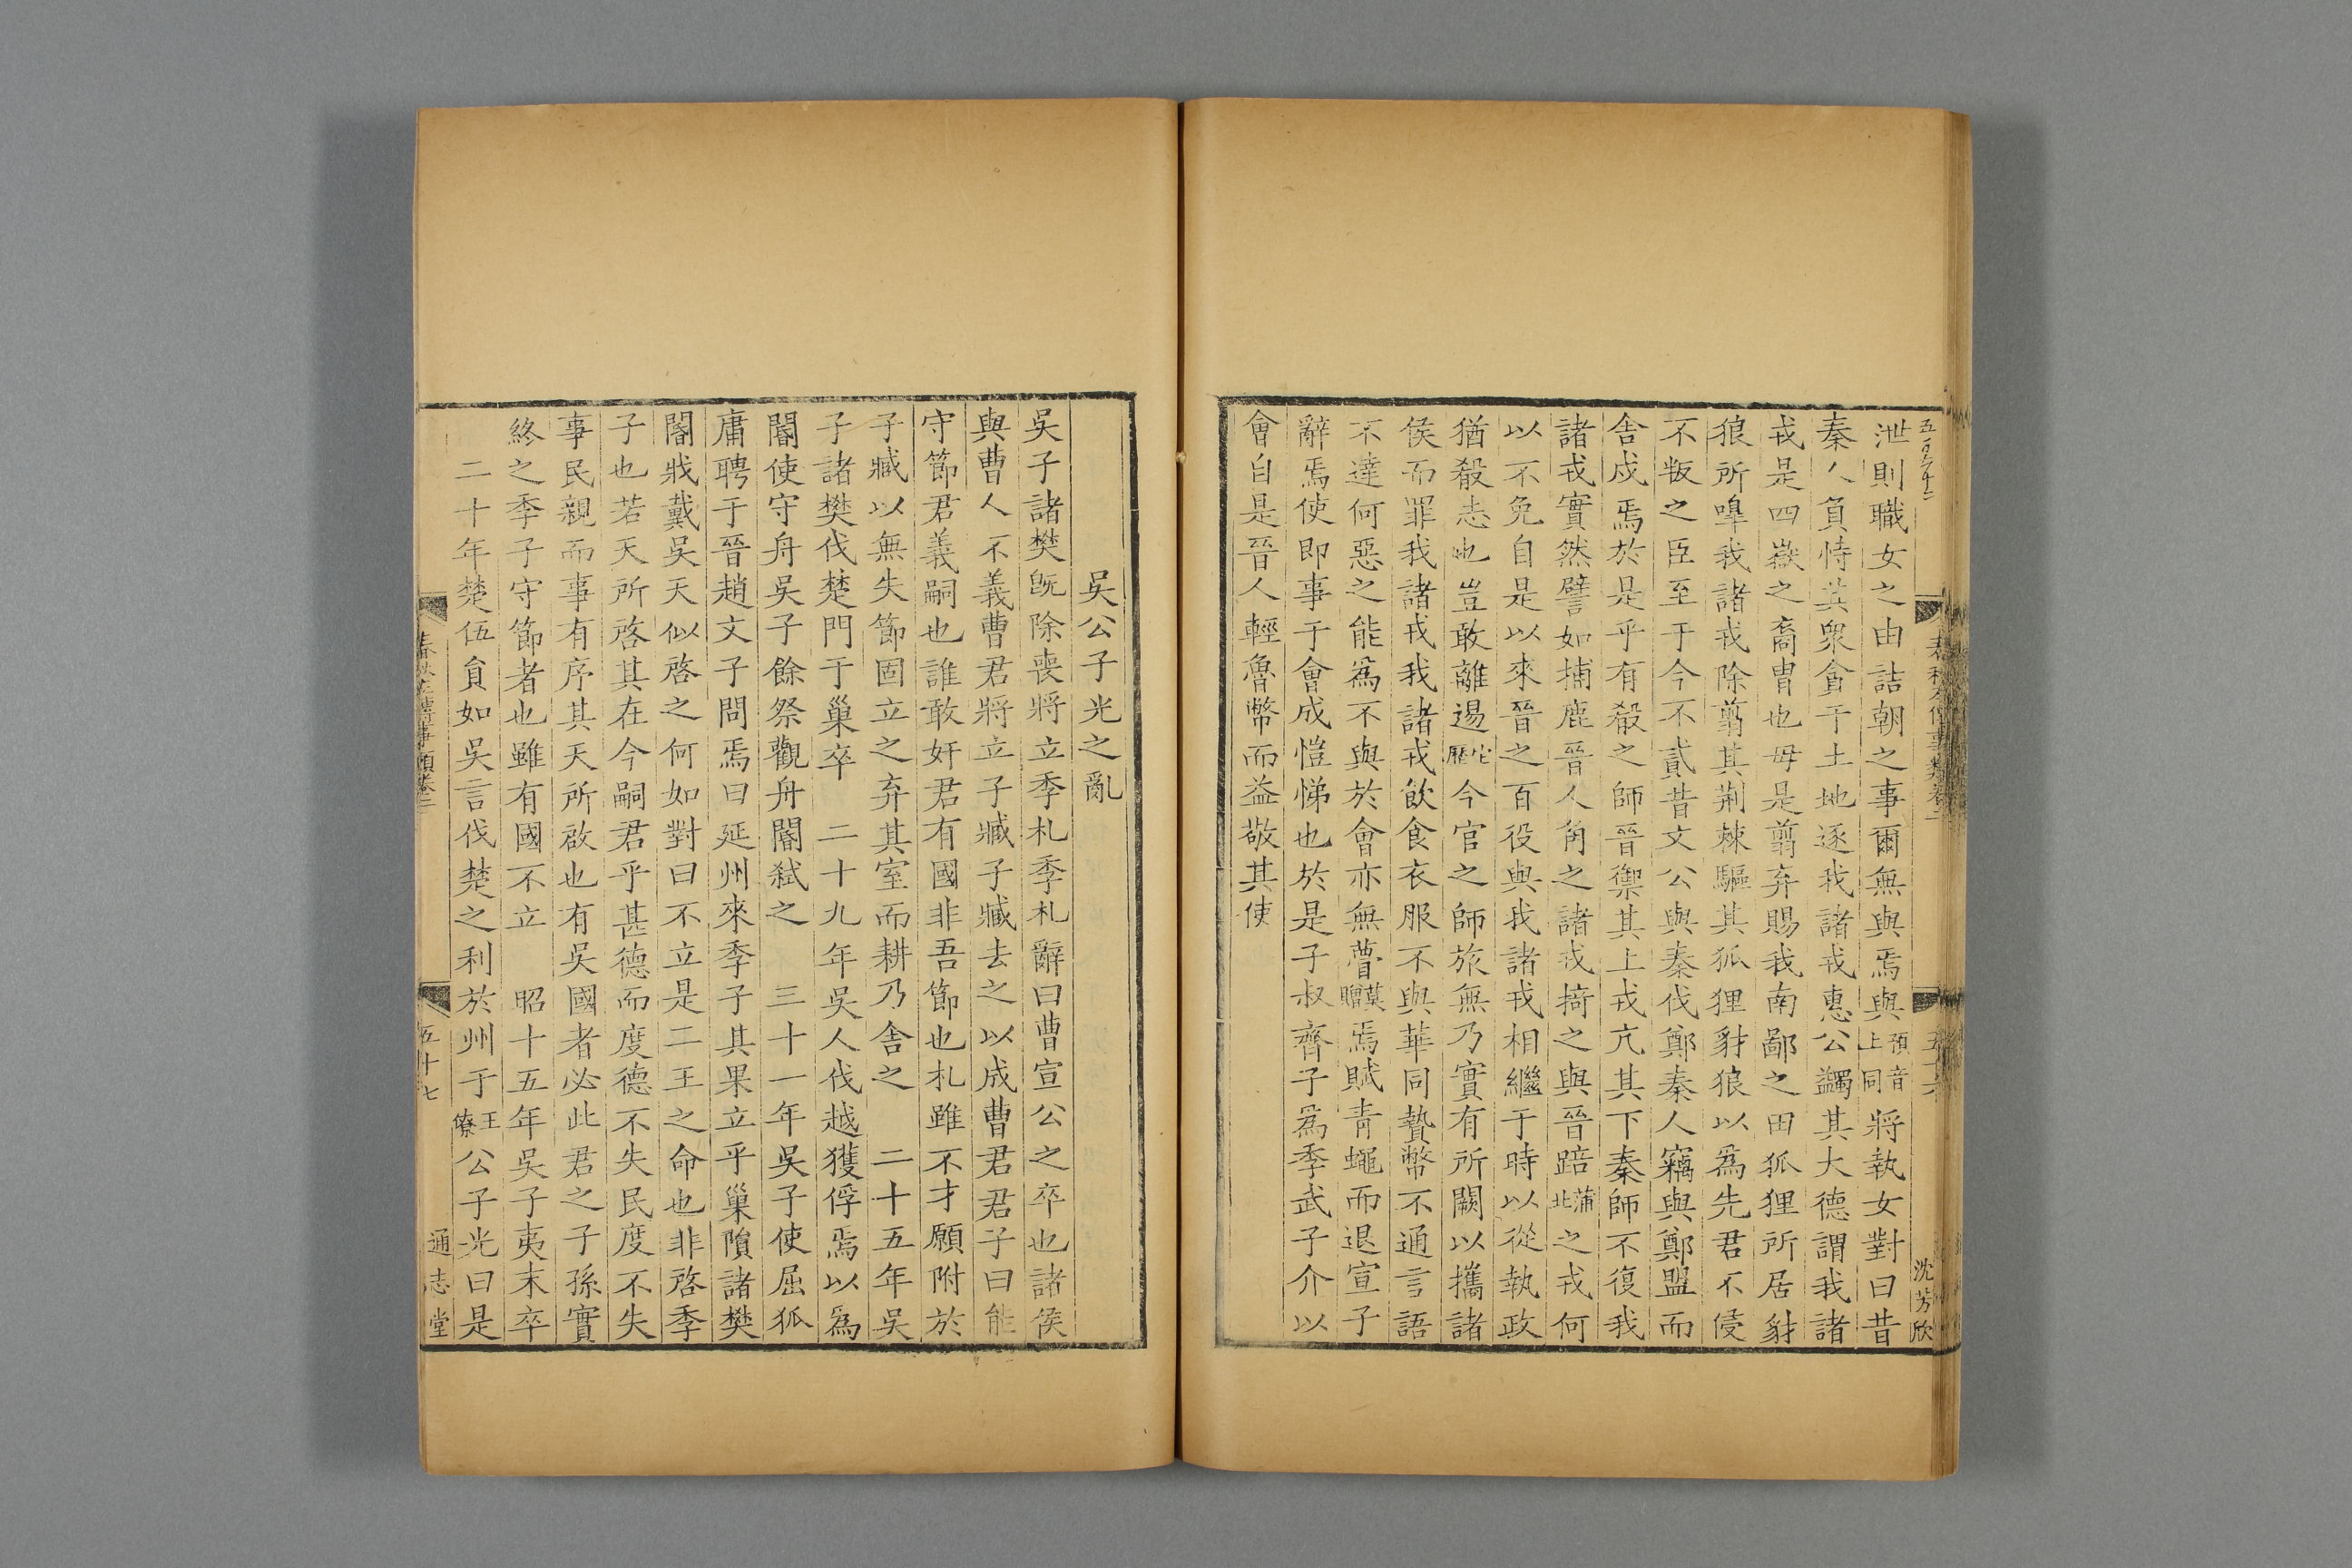 泄則職女之由詰朝之事爾無與焉與預音上同將執女對曰昔
秦人負恃其衆貪于土地逐我諸戎惠公蠲其大德謂我諸
戎是四嶽之裔胄也毋是翦弃賜我南鄙之田狐狸所居豺
狼所嘷我諸戎除翦其荆棘驅其狐狸豺狼以爲先君不侵
不叛之臣至于今不貳昔文公與秦伐鄭秦人竊與鄭盟而
舍戍焉於是乎有殽之師晉禦其上戎亢其下秦師不復我
諸戎實然譬如捕鹿晉人角之諸戎掎之與晉踣蒲北之戎何
以不免自是以來晉之百役與我諸戎相繼于時以從執政
猶殽志也豈敢離逷他歷今官之師旅無乃實有所闕以攜諸
侯而罪我諸戎我諸戎飲食衣服不與華同贄幣不通言語
不達何惡之能爲不與於會亦無瞢莫贈焉賦青蠅而退宣子
辭焉使即事于會成愷悌也於是子叔齊子爲季武子介以
會自是晉人輕魯幣而益敬其使
五十六
沈芳欣
吳公子光之亂
吳子諸樊旣除喪將立季札季札辭曰曹宣公之卒也諸侯
與曹人不義曹君將立子臧子臧去之以成曹君君子曰能
守節君義嗣也誰敢奸君有國非吾節也札雖不才願附於
子臧以無失節固立之弃其室而耕乃舍之 二十五年吳
子諸樊伐楚門于巢卒 二十九年吳人伐越獲俘焉以爲
閽使守舟吳子餘祭觀舟閽弑之 三十一年吳子使屈狐
庸聘于晉趙文子問焉曰延州來季子其果立乎巢隕諸樊
閽戕戴吳天似啓之何如對曰不立是二王之命也非啓季
子也若天所啓其在今嗣君乎甚德而度德不失民度不失
事民親而事有序其天所啟也有吳國者必此君之子孫實
終之季子守節者也雖有國不立 昭十五年吳子夷末卒
二十年楚伍員如吳言伐楚之利於州于王僚公子光曰是
春秋左傳事類卷二
五十七
通志堂